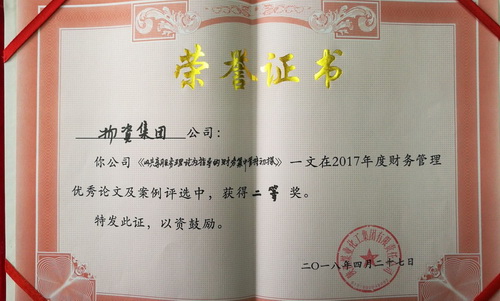 荣誉证书
物资集团 公司：
你公司《以共享服务理论为指导的财务集中管控初探》一文在2017年度财务管理
优秀论文及案例评选中，获得二等奖。
特发此证，以资鼓励。
二〇一八年四月二十七日